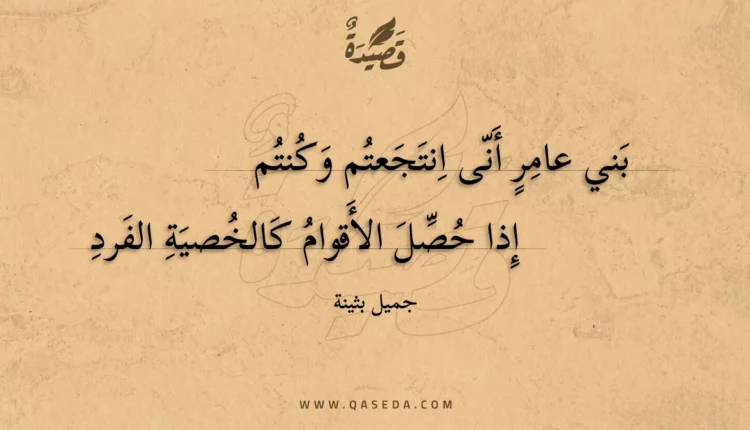 قَصِيْدَةٌ
بَني عامِرٍ أَنّى اِنتَجَعتُم وَكُنتُم
إِذا حُصِّلَ الأَقوامُ كَالخُصيَةِ الفَردِ
جميل بثينة
WWW.QASEDA.COM